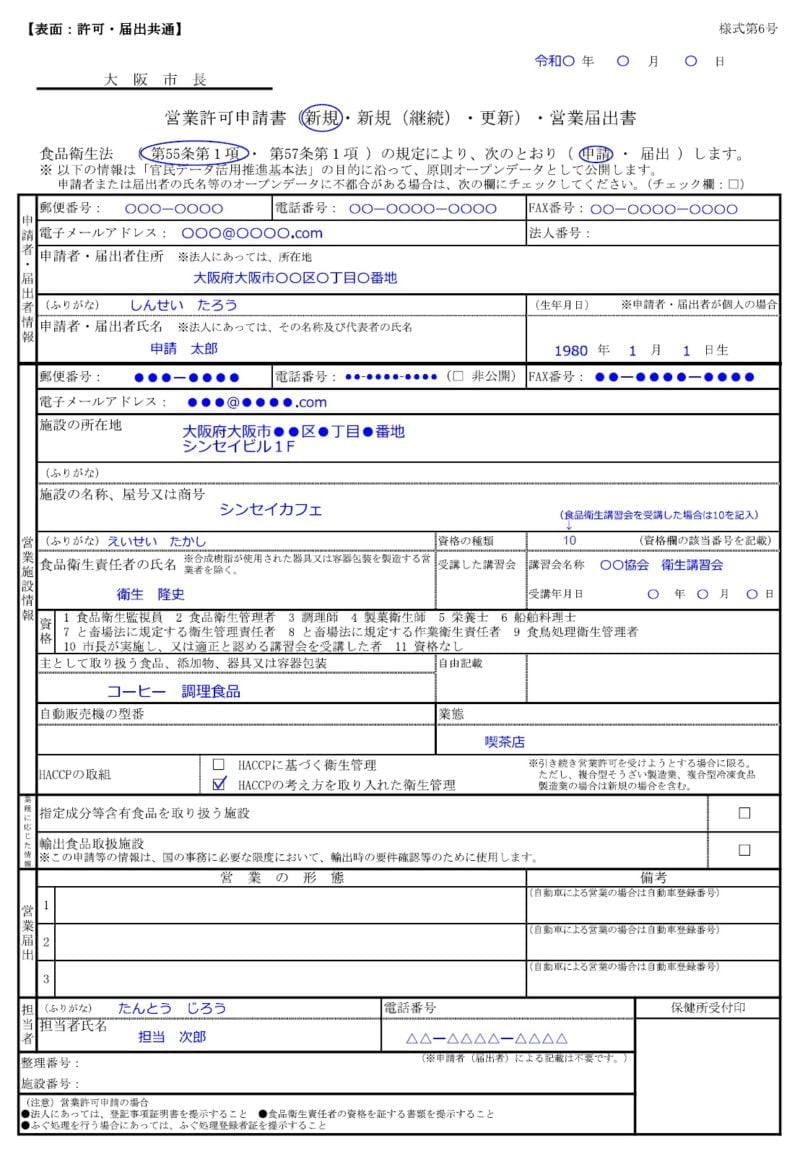 【表面：許可・届出共通】
様式第6号
令和〇 年 〇 月 〇 日
大 阪 市 長
営業許可申請書（新規・新規（継続）・更新）・営業届出書
食品衛生法 （第55条第1項・ 第57条第1項 ）の規定により、次のとおり（ 申請 ・ 届出 ）します。
※ 以下の情報は「官民データ活用推進基本法」の目的に沿って、原則オープンデータとして公開します。
申請者または届出者の氏名等のオープンデータに不都合がある場合は、次の欄にチェックしてください。（チェック欄：□）
申請者・届出者情報
郵便番号： 〇〇〇－〇〇〇〇 電話番号： 〇〇－〇〇〇〇－〇〇〇〇 FAX番号： 〇〇－〇〇〇〇－〇〇〇〇
電子メールアドレス： 〇〇〇@〇〇〇〇.com 法人番号：
申請者・届出者住所 ※法人にあっては、所在地
大阪府大阪市〇〇区〇丁目〇番地
（ふりがな） しんせい たろう （生年月日） ※申請者・届出者が個人の場合
申請者・届出者氏名 ※法人にあっては、その名称及び代表者の氏名
申請 太郎 1980 年 1 月 1 日生
営業施設情報
郵便番号： ●●●－●●●● 電話番号： ●●-●●●●-●●●● （□ 非公開） FAX番号： ●●－●●●●－●●●●
電子メールアドレス： ●●●@●●●●.com
施設の所在地 大阪府大阪市●●区●丁目●番地
シンセイビル１F
（ふりがな）
施設の名称、屋号又は商号
シンセイカフェ
（食品衛生講習会を受講した場合は10を記入）
↓
（ふりがな） えいせい たかし 資格の種類 10 （資格欄の該当番号を記載）
食品衛生責任者の氏名 ※合成樹脂が使用された器具又は容器包装を製造する営業者を除く。 受講した講習会 講習会名称 〇〇協会 衛生講習会
衛生 隆史 受講年月日 〇 年 〇 月 〇 日
資格
1 食品衛生監視員 2 食品衛生管理者 3 調理師 4 製菓衛生師 5 栄養士 6 船舶料理士
7 と畜場法に規定する衛生管理責任者 8 と畜場法に規定する作業衛生責任者 9 食鳥処理衛生管理者
10 市長が実施し、又は適正と認める講習会を受講した者 11 資格なし
主として取り扱う食品、添加物、器具又は容器包装 自由記載
コーヒー 調理食品
自動販売機の型番 業態
喫茶店
HACCPの取組
□ HACCPに基づく衛生管理
☑ HACCPの考え方を取り入れた衛生管理
※引き続き営業許可を受けようとする場合に限る。
ただし、複合型そうざい製造業、複合型冷凍食品
製造業の場合は新規の場合を含む。
業種に応じた情報
指定成分等含有食品を取り扱う施設 □
輸出食品取扱施設 □
※この申請等の情報は、国の事務に必要な限度において、輸出時の要件確認等のために使用します。
営業届出
営 業 の 形 態 備考
1 （自動車による営業の場合は自動車登録番号）
2 （自動車による営業の場合は自動車登録番号）
3 （自動車による営業の場合は自動車登録番号）
担当者
（ふりがな） たんとう じろう 電話番号 保健所受付印
担当者氏名
担当 次郎 △△－△△△△－△△△△
整理番号： （※申請者（届出者）による記載は不要です。）
施設番号：
（注意）営業許可申請の場合
●法人にあっては、登記事項証明書を提示すること ●食品衛生責任者の資格を証する書類を提示すること
●ふぐ処理を行う場合にあっては、ふぐ処理登録者証を提示すること